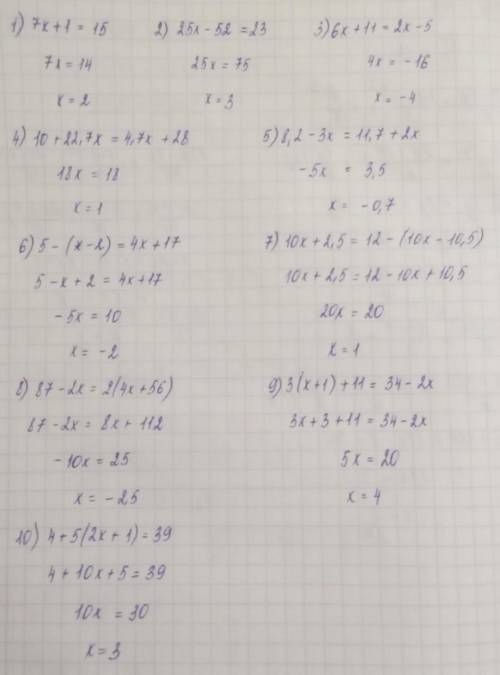 1) 7x+1 = 15
7x = 14
x = 2
2) 25x - 52 = 23
25x = 75
x = 3
3) 6x + 11 = 2x - 5
4x = -16
x = -4
4) 10 + 22,7x = 4,7x + 28
18x = 18
x = 1
5) 8,2 - 3x = 11,7 + 2x
-5x = 3,5
x = -0,7
6) 5 - (x - 2) = 4x + 17
5 - x + 2 = 4x + 17
-5x = 10
x = -2
7) 10x + 2,5 = 12 - (10x - 10,5)
10x + 2,5 = 12 - 10x + 10,5
20x = 20
x = 1
8) 87 - 2x = 2(4x + 56)
87 - 2x = 8x + 112
-10x = 25
x = -25
9) 3(x+1) + 11 = 34 - 2x
3x + 3 + 11 = 34 - 2x
5x = 20
x = 4
10) 4 + 5(2x + 1) = 39
4 + 10x + 5 = 39
10x = 30
x = 3